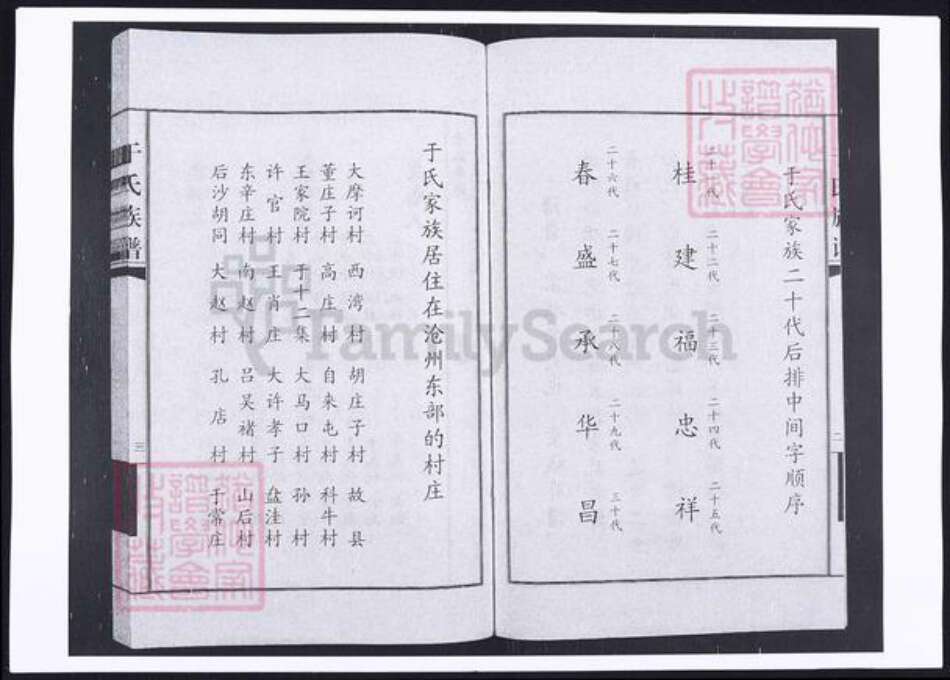 于氏家族二十代后排中间字顺序
二十一代 二十二代 二十三代 二十四代 二十五代
桂 建 福 忠 祥
二十六代 二十七代 二十八代 二十九代 三十代
春 盛 承 华 昌
二
于氏家族居住在沧州东部的村庄
大摩诃村 西湾村 胡庄子村 故县
董庄子村 高庄村 自来屯村 科牛村
王家院村 于十二集 大马口村 孙村
许官村 王肖庄 大许孝子 盘洼村
东辛庄村 南赵村 吕吴褚村 山后村
后沙胡同 大赵村 孔店村 于常庄
于氏族谱
三
FamilySearch